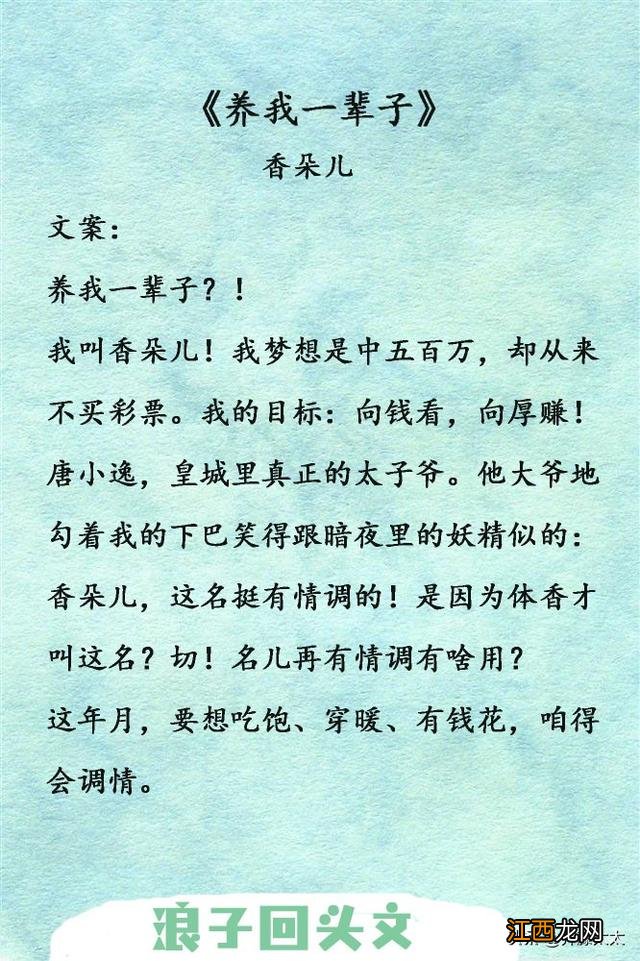 《养我一辈子》
香朵儿
文案：
养我一辈子？！
我叫香朵儿！我梦想是中五百万，却从来
不买彩票。我的目标：向钱看，向厚赚！
唐小逸，皇城里真正的太子爷。他大爷地
勾着我的下巴笑得跟暗夜里的妖精似的：
香朵儿，这名挺有情调的！是因为体香才
叫这名？切！名儿再有情调有啥用？
这年月，要想吃饱、穿暖、有钱花，咱得
会调情。
浪子回头文
江西龙网